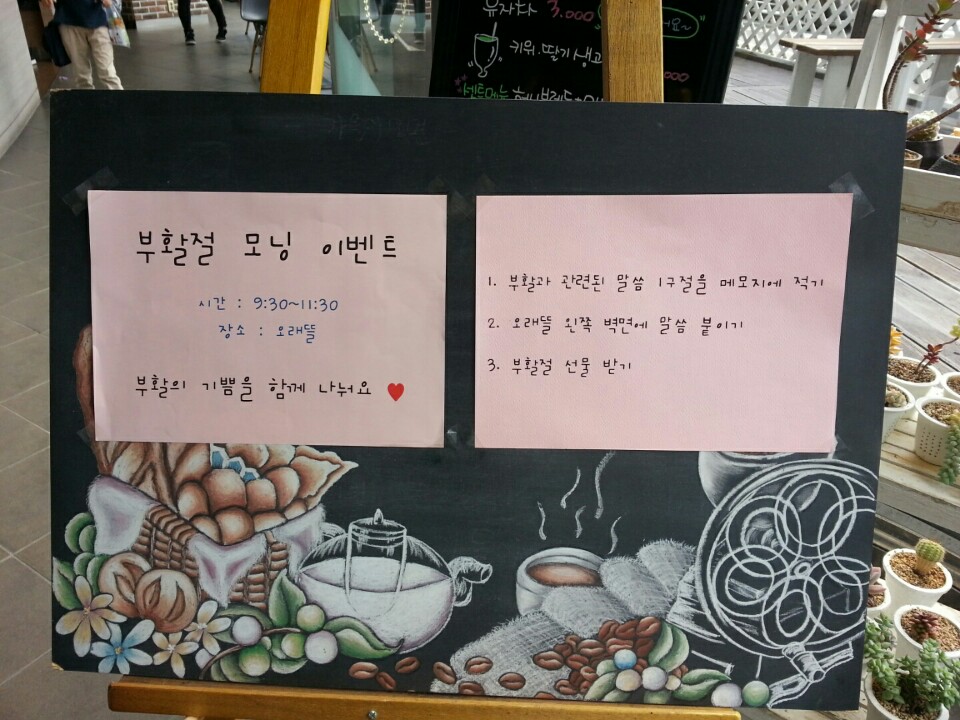 유자차 3.000
키위. 딸기 생과
세트메뉴
부활절 모닝 이벤트
시간 : 9:30~11:30
장소 : 오래뜰
부활의 기쁨을 함께 나눠요 ♥
1. 부활과 관련된 말씀 1구절을 메모지에 적기
2. 오래뜰 왼쪽 벽면에 말씀 붙이기
3. 부활절 선물 받기